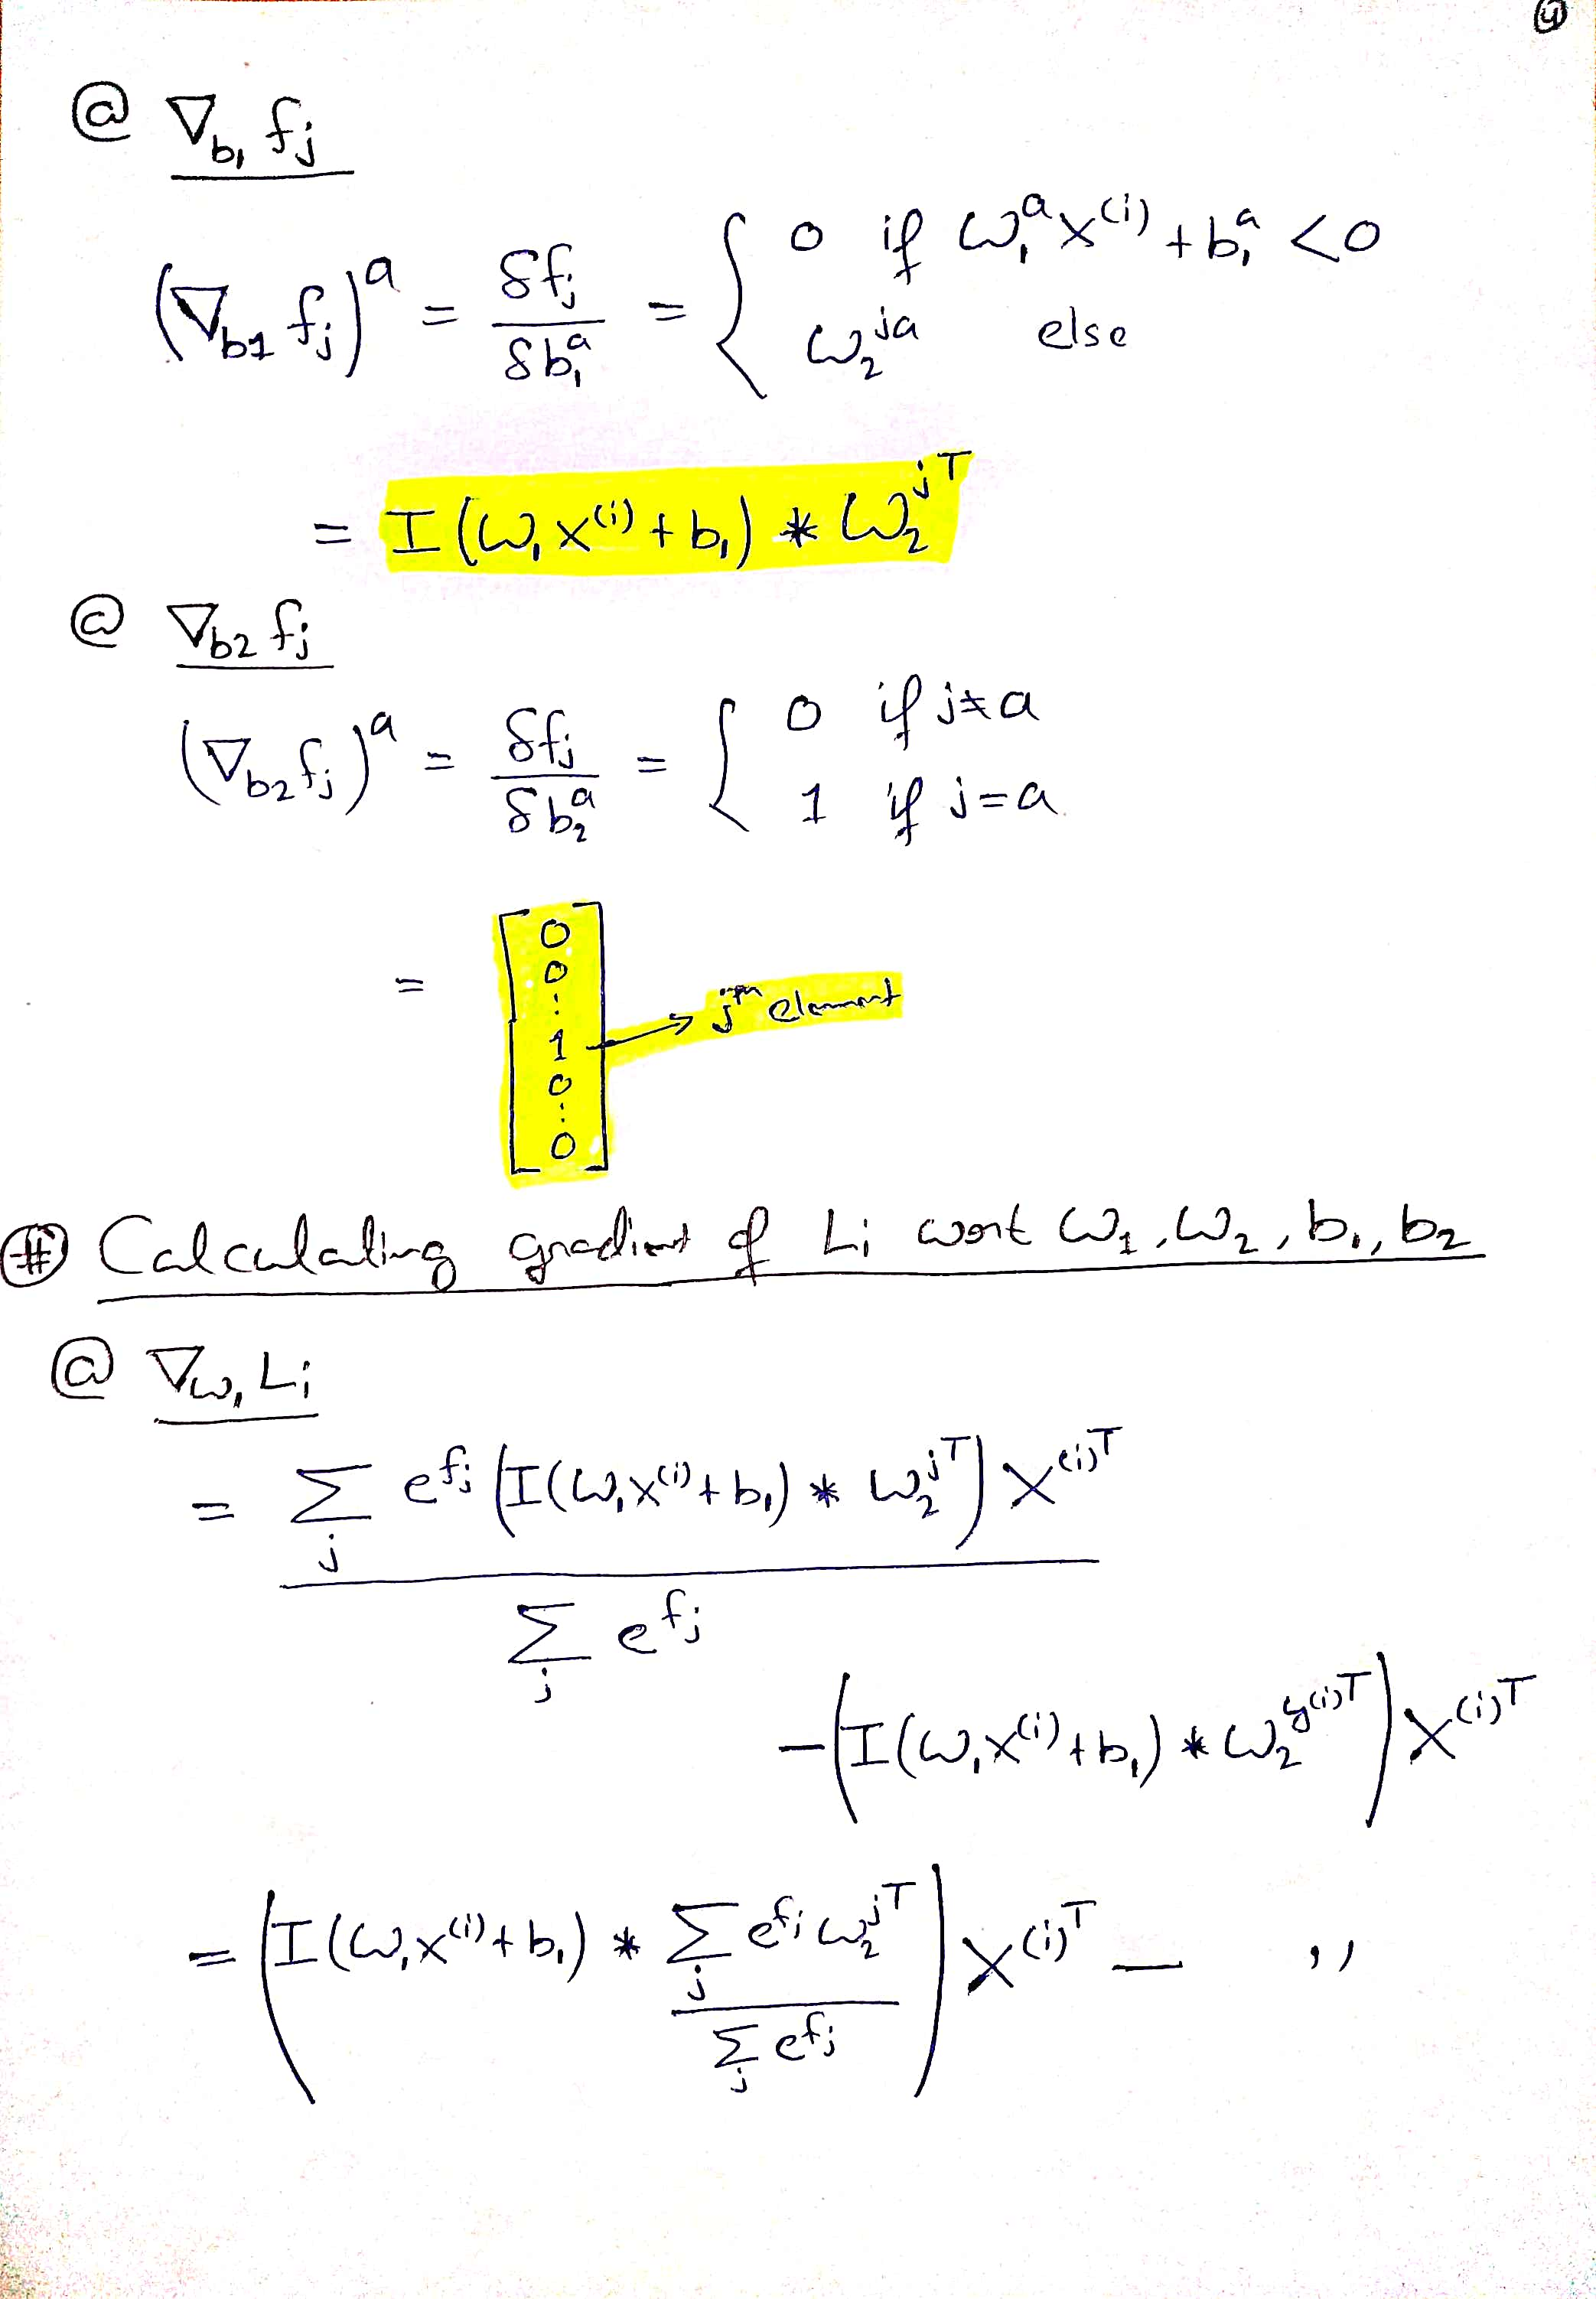 ④
@ ∇_{b_1} f_j
(∇_{b1} f_j)^a = δf_j / δb_1^a = { 0 if W_1^a x^{(i)} + b_1^a < 0
W_2^{ja} else
= I(W_1 x^{(i)} + b_1) * W_2^{jT}
@ ∇_{b2} f_j
(∇_{b2} f_j)^a = δf_j / δb_2^a = { 0 if j≠a
1 if j=a
= [ 0 0 ⋮ 1 0 ⋮ 0 ] → j^{th} element
# Calculating gradient of Li wrt W_1, W_2, b_1, b_2
@ ∇_{W_1} Li
= Σ_j e^{f_j} (I(W_1 x^{(i)} + b_1) * W_2^{jT}) x^{(i)T} / Σ_j e^{f_j}
- (I(W_1 x^{(i)} + b_1) * W_2^{y^{(i)}T}) x^{(i)T}
= (I(W_1 x^{(i)} + b_1) * Σ_j e^{f_j} W_2^{jT} / Σ_j e^{f_j}) x^{(i)T} — ,,